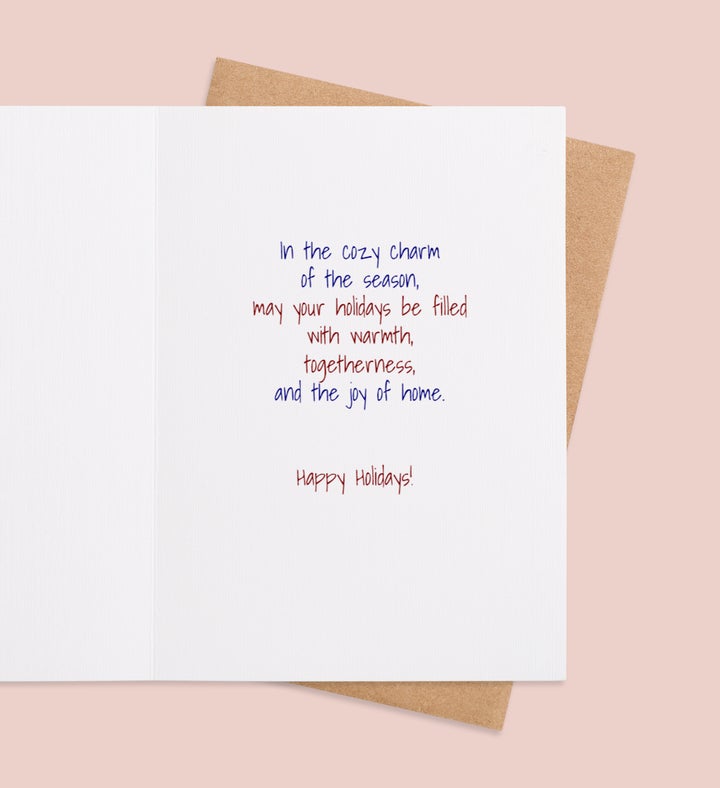 In the cozy charm
of the season,
may your holidays be filled
with warmth,
togetherness,
and the joy of home.
Happy Holidays!